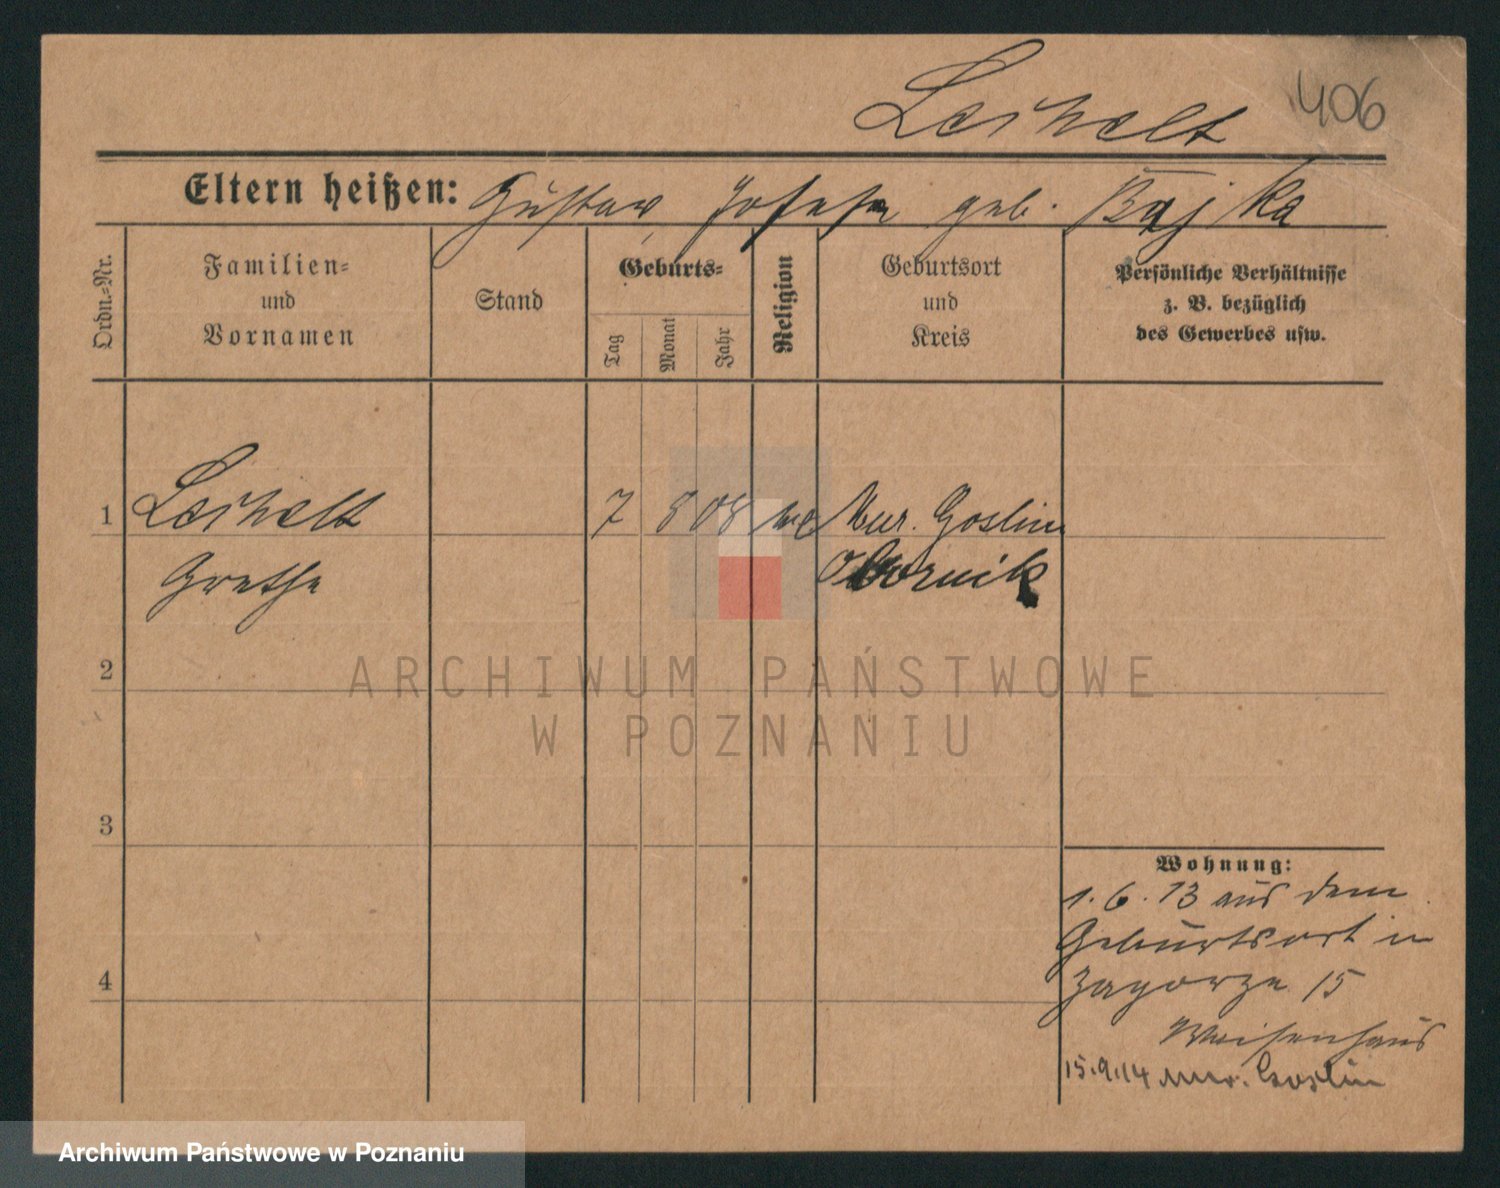 Leihelt 406
Eltern heißen: Gustav, Josefa geb. Bajka
Ordn.-Nr.
Familien-
und
Vornamen
Stand
Geburts-
Tag
Monat
Jahr
Religion
Geburtsort
und
Kreis
Persönliche Verhältnisse
z. B. bezüglich
des Gewerbes usw.
1 Leihelt 7 8 08 Mur. Goslin
Grethe Obornik
2
ARCHIWUM PAŃSTWOWE
W POZNANIU
3
4
Wohnung:
1. 6. 13 aus dem
Geburtsort in
Zagorze 15
Waisenhaus
15.9.14 Mur. Goslin
Archiwum Państwowe w Poznaniu